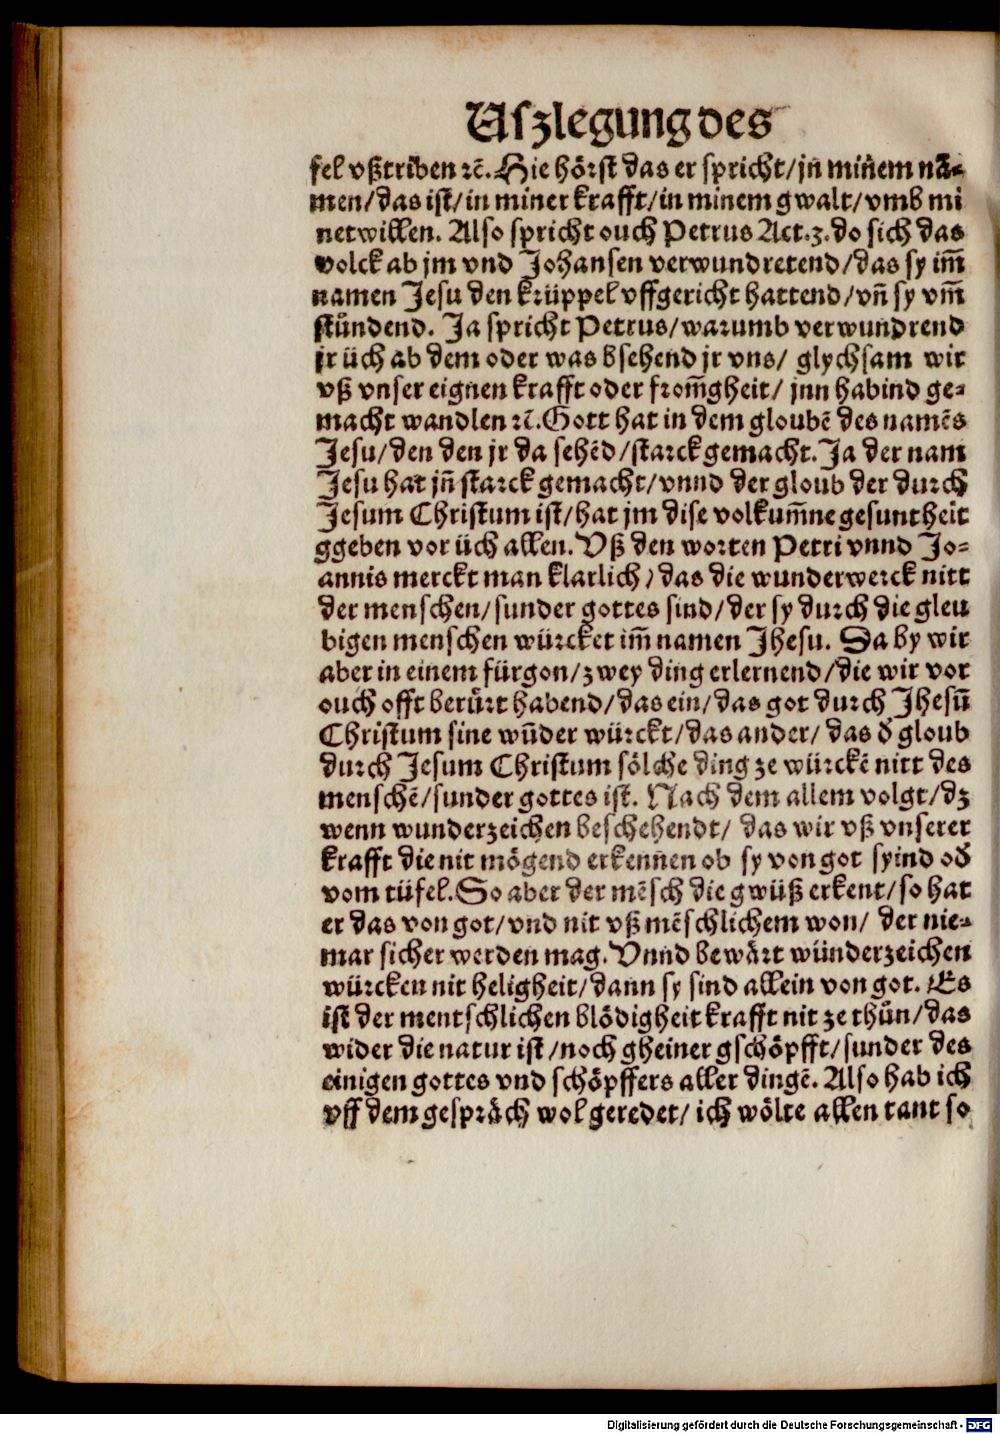 Uſzlegung des
fel vßtriben ꝛc̄. Hie hoͤrſt das er ſpricht/jn minem nā-
men/das iſt/in miner krafft/in minem gwalt/vmb mi
netwillen. Alſo ſpricht ouch Petrus Act.3.do ſich das
volck ab jm vnd Johanſen verwundretend/das ſy im̄
namen Jeſu den krüppel vffgericht hattend/vn̄ ſy vm̄
ſtůndend. Ja ſpricht Petrus/warumb verwundrend
jr üch ab dem oder was bſehend jr vns/ glychſam wir
vß vnſer eignen krafft oder from̄gheit/ jnn habind ge-
macht wandlen ꝛc̄. Gott hat in dem gloubē des namēs
Jeſu/den den jr da ſehēd/ſtarck gemacht. Ja der nam
Jeſu hat jn̄ ſtarck gemacht/vnnd der gloub der durch
Jeſum Chriſtum iſt/hat jm diſe volkum̄ne geſuntheit
ggeben vor üch allen. Vß den worten Petri vnnd Jo-
annis merckt man klarlich/das die wunderwerck nitt
der menſchen/ſunder gottes ſind/der ſy durch die gleu
bigen menſchen würcket im̄ namen Jheſu. Da by wir
aber in einem fürgon/zwey ding erlernend/die wir vor
ouch offt berůrt habend/das ein/das got durch Jheſū
Chriſtum ſine wūder würckt/das ander/ das đ gloub
durch Jeſum Chriſtum ſoͤlche ding ze würckē nitt des
menſchē/ſunder gottes iſt. Nach dem allem volgt/dz
wenn wunderzeichen beſchehendt/ das wir vß vnſerer
krafft die nit moͤgend erkennen ob ſy von got ſyind ođ
vom tüfel. So aber der mēſch die gwüß erkent/ſo hat
er das von got/vnd nit vß mēſchlichem won/ der nie-
mar ſicher werden mag. Vnnd bewaͤrt wünderzeichen
würcken nit heligheit/dann ſy ſind allein von got. Es
iſt der mentſchlichen bloͤdigheit krafft nit ze thůn/das
wider die natur iſt/noch gheiner gſchoͤpfft/ſunder des
einigen gottes vnd ſchoͤpffers aller dingē. Alſo hab ich
vff dem geſpraͤch wol geredet/ ich woͤlte allen tant ſo
Digitalisierung gefördert durch die Deutsche Forschungsgemeinschaft - DFG